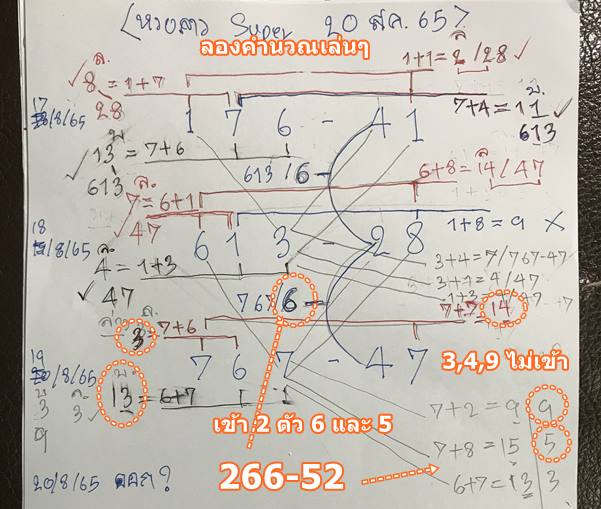 (หวยลาว Super 20 ส.ค. 65)
ลองคำนวณเล่นๆ
ล.
8 = 1+7
28
1+1 = 2/28
7+4 = 11
613
17/8/65
1 7 6 - 41
13 = 7+6
613
613/6-
6+8 = 14/47
7 = 6+1
47
1+8 = 9 X
18/8/65
6 1 3 - 28
4 = 1+3
47
3+4 = 7/767-47
3+1 = 4/47
767/6-
7+7 = 14
3 = 7+6
19/8/65
7 6 7 - 47
3,4,9 ไม่เข้า
13 = 6+7
7+2 = 9 9
เข้า 2 ตัว 6 และ 5
7+8 = 15 5
266-52
6+7 = 13 3
20/8/65 ออก?